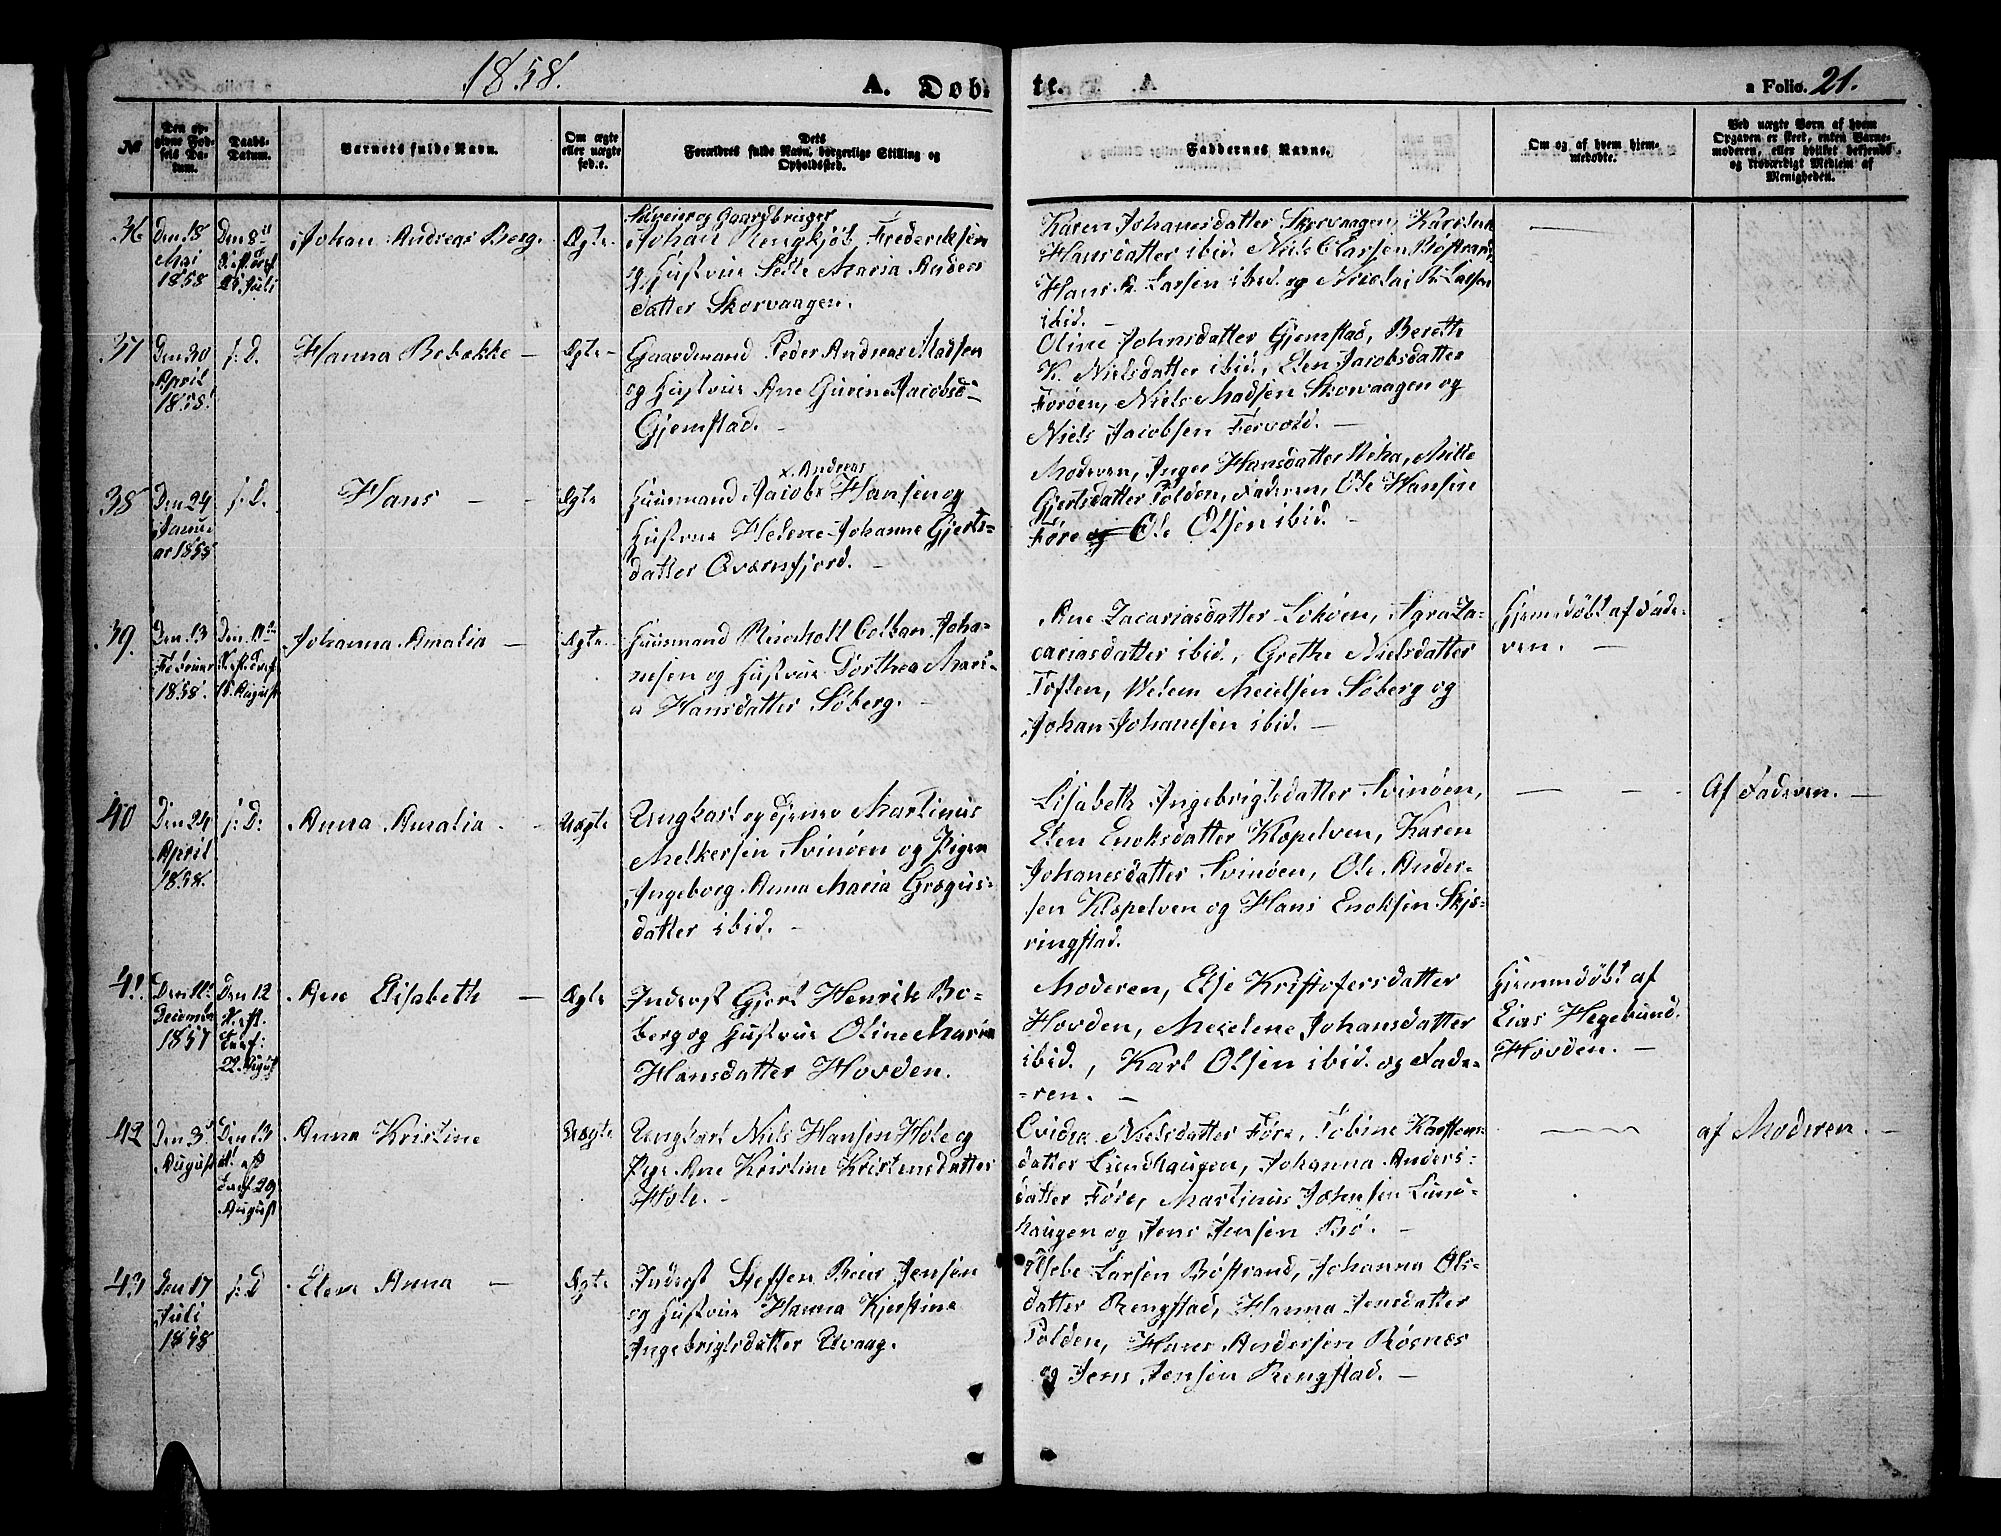 1858.
A. Døb:
te.
a Folio. 21.
№
Den op-
givne Fød-
sels Da-
tum.
Daabs-
Datum.
Barnets fulde Navn.
Om ægte
eller uægte
fød.e.
Dets
Forældres fulde Navn, borgerlige Stilling og
Opholdssted.
Faddernes Navne.
Om og af hvem hjem-
medøbte.
Ved uægte Børn af hvem
Opgaven er skeet, enten Barne-
moderen, eller hvilket bekjendt
og troværdigt Medlem af
Menigheden.
36
Den 18
Mai
1858
Den 8de
25 Juli
Johan Andreas Berg.
Ægte
Selveier og Gaardbruger
Johan Rengkjøb Frederiksen
og Hustrue Sille Maria Anders
datter Skorvaagen.
Karen Johansdatter Skorvaagen, Karstine
Hansdatter ibid. Niels C Larsen Bøstrand,
Hans R. Larsen ibid. og Nicolai R. Larsen
ibid. —
37
Den 30
April
1858.
s: D.
Hanna Bebække —
Ægte —
Gaardmand Peder Andreas Madsen
og Hustrue Ane Gurine Jacobsd—
Gjemstad. —
Oline Johnsdatter Gjemstad, Bereth
K. Nielsdatter ibid., Elen Jacobsdatter
Forøen, Niels Madsen Skorvaagen og
Niels Jacobsen Førvold. —
38
Den 24
Janu-
ar 1858
s: D.
Hans — —
Ægte
x. Andreas
Huusmand Jacob x Hansen og
Hustrue Helene Johanne Gjerts-
datter Qværnfjord. —
Moderen, Inger Hansdatter Vika, Mille
Gjertsdatter Polden, Faderen, Ole Hansen
Føre og Ole Olsen ibid. —
39.
Den 13
Februar
1858.
Den 11te
15. August
Johanna Amalia —
Ægte
Huusmand Rinholt Colban Joha-
nesen og Hustrue Dorthea Mari-
a Hansdatter Søberg. —
Ane Zacariasdatter Lokøen, Agra Za-
cariasdatter ibid., Grethe Nielsdatter
Toften, Welem Meielsen Søberg og
Johan Johanesen ibid. —
Hjemmedøbt af Fade-
ren. —
40
Den 24
April
1858.
s: D:
Anna Amalia. —
Uægte
Ungkarl og Tjener Martinus
Melkersen Svinøen og Pigen
Ingeborg Anna Maria Grægus-
datter ibid. —
Lisabeth Ingebrigtsdatter Svinøen,
Elen Enoksdatter Klæpelven, Karen
Johanesdatter Svinøen, Ole Ander-
sen Klæpelven og Hans Enoksen Skjæ-
ringstad.
— — —
Af Faderen. —
41.
Den 11te
December
1857
Den 12
22. August
Ane Elisabeth —
Ægte
Inderst Gjert Henrik Bo-
berg og Hustrue Oline Maria
Hansdatter Hovden.
Moderen, Else Kristofersdatter
Hovden, Mekelene Johansdatter
ibid., Karl Olsen ibid. og Fade-
-ren. —
Hjemmedøbt af
Eias Hegelund
Hovden. —
42
Den 3die
August
Den 13
29
August
Anna Kristine
Uægte
Ungkarl Niels Hansen Hole og
Pige Ane Kristine Kristensdatter
Hole. —
Nielsdatter Føre, Tobine Karstens-
datter Lundhaugen, Johanna Anders-
datter Føre, Martinus Johnsen Lund-
haugen og Jens Jensen Bø. —
af Moderen. —
43
Den 17
Juli
1858
s: D
Elen Anna —
Ægte
Inderst Steffen Beier Jensen
og Hustrue Hanna Kjerstine
Ingebrigtsdatter Uvaag.
Elsebe Larsen Bøstrand, Johanna Ols-
datter Rengstad, Hanna Jensdatter
Polden, Hans Andersen Røsnes
og Jens Jensen Rengstad. —